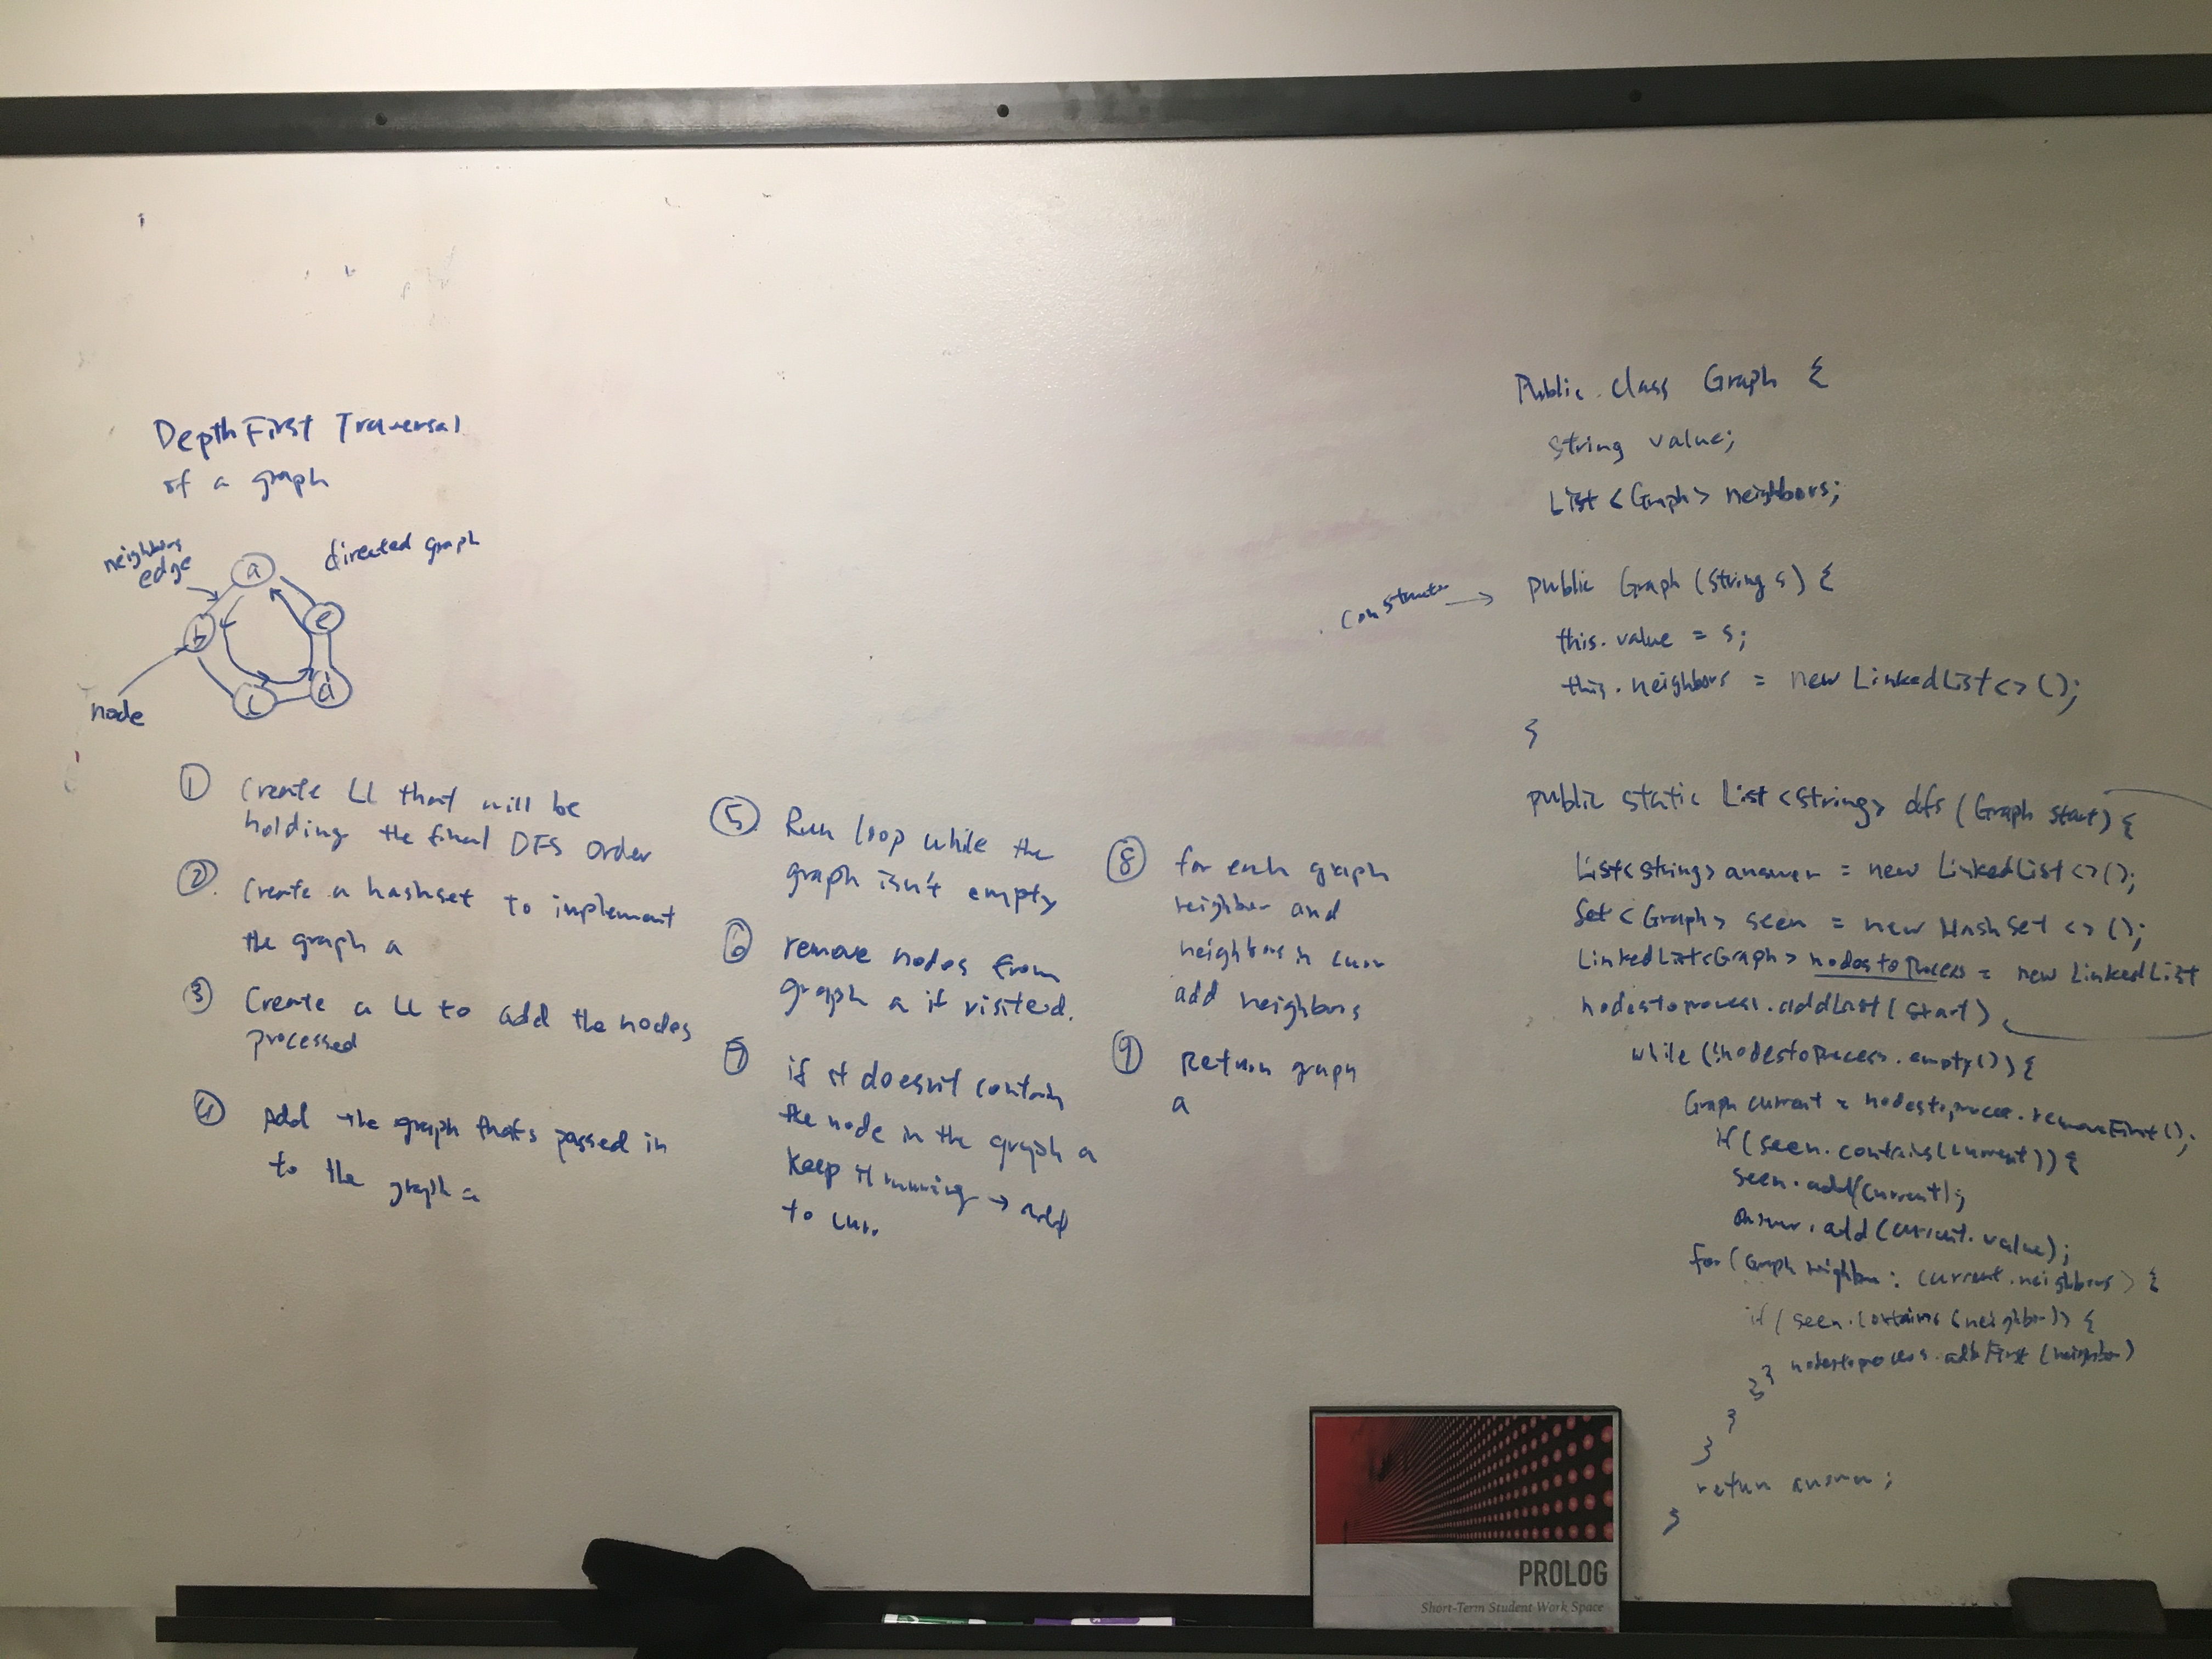 Depth First Traversal
of a graph
neighbors
edge
directed graph
a
b
e
c
d
node
① Create LL that will be
holding the final DFS order
②. Create a hashset to implement
the graph a
③ Create a LL to add the nodes
processed
④ Add the graph thats passed in
to the graph a
⑤. Run loop while the
graph isn't empty
⑥ remove nodes from
graph a if visited.
⑦ if it doesn't contain
the node in the graph a
keep it running → add
to curr.
⑧ for each graph
neighbor and
neighbors in curr
add neighbors
⑨ Return graph
a
Public class Graph {
String value;
List <Graph> neighbors;
constructor →
public Graph (String s) {
this.value = s;
this.neighbors = new LinkedList<>();
}
public static List <String> dfs (Graph start) {
List<String> answer = new LinkedList<>();
Set <Graph> seen = new HashSet <>();
LinkedList<Graph> nodestoProcess = new LinkedList
nodestoprocess.addLast(start)
while (!nodestoProcess.empty()) {
Graph current = nodestoprocess.removeFirst();
if (seen.contains(current)) {
seen.add(current);
answer.add(current.value);
for (Graph neighbor : current.neighbors) {
if (seen.contains(neighbor)) {
nodestoprocess.addFirst(neighbor)
}}
}
}
return answer;
}
PROLOG
Short-Term Student Work Space